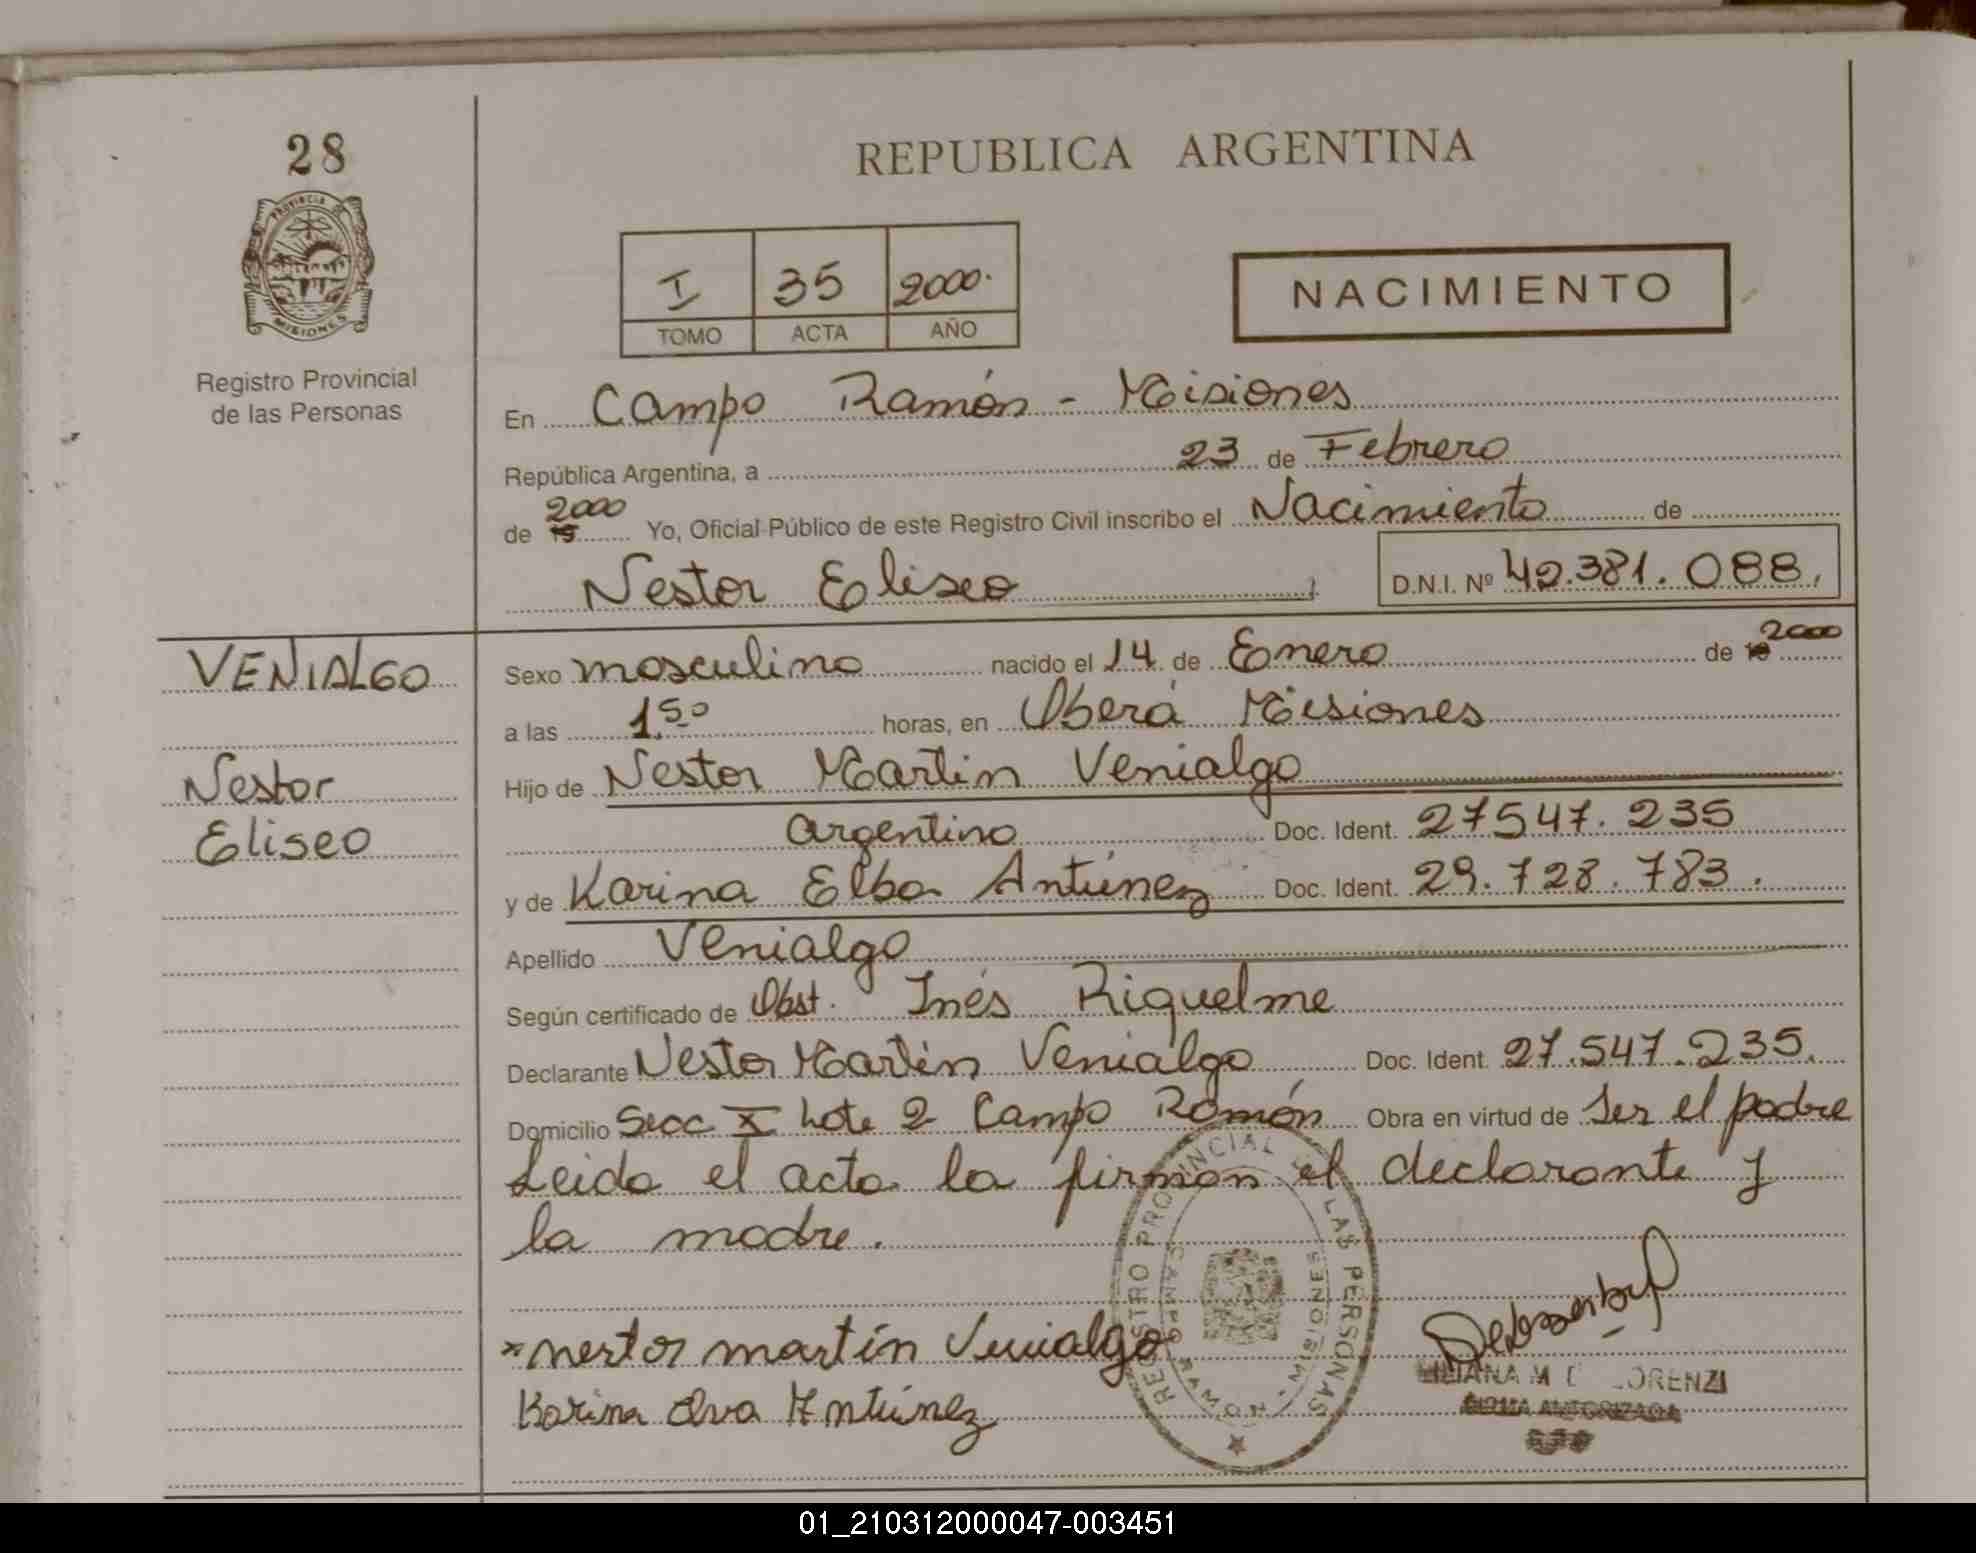 28
REPUBLICA ARGENTINA
PROVINCIA DE
MISIONES
Registro Provincial
de las Personas
I 35 2000.
TOMO ACTA AÑO
NACIMIENTO
En Campo Ramón - Misiones
República Argentina, a 23 de Febrero
de 19 2000 Yo, Oficial Público de este Registro Civil inscribo el Nacimiento de
Nestor Eliseo D.N.I. Nº 42.381.088.
VENIALGO
Sexo masculino nacido el 14 de Enero de 19 2000
a las 1.50 horas, en Oberá Misiones
Nestor
Hijo de Nestor Martin Venialgo
Eliseo
argentino Doc. Ident. 27547.235
y de Karina Elba Antúnez Doc. Ident. 29.728.783.
Apellido Venialgo
Según certificado de Obst. Inés Riquelme
Declarante Nestor Martín Venialgo Doc. Ident. 27.547.235.
Domicilio Secc X Lote 2 Campo Ramón Obra en virtud de ser el padre
Leida el acta la firman el declarante y
la madre.
REGISTRO PROVINCIAL DE LAS PERSONAS
CAMPO RAMON - MISIONES
*nestor martín Venialgo
Karina elva Antúnez
LILIANA M D LORENZI
FIRMA AUTORIZADA
01_210312000047-003451